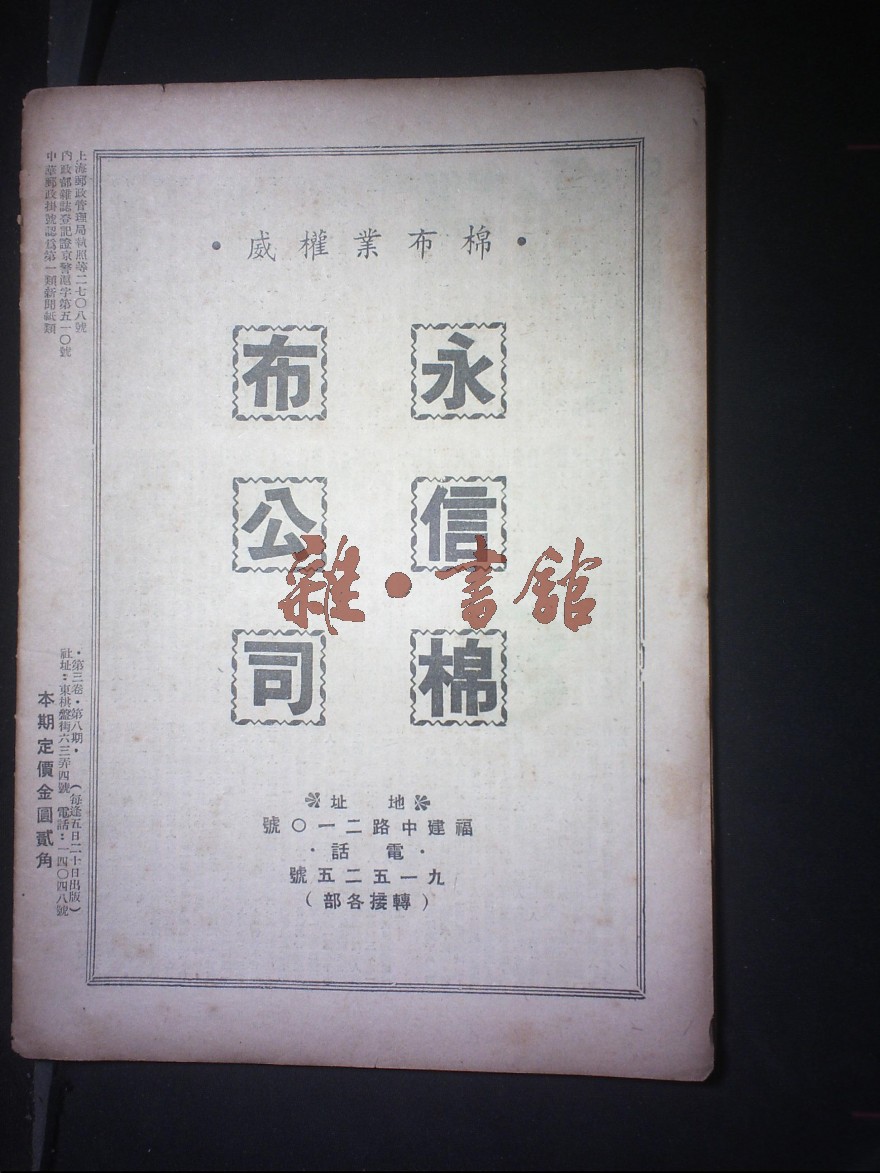 ·棉布業權威·
永信棉
布公司
雜·書館
地址
福建中路二一〇號
·電話·
九一五二五號
(轉接各部)
上海郵政管理局執照第二七〇八號
內政部雜誌登記證京警滬字第五一〇號
中華郵政掛號認爲第一類新聞紙類
·第三卷·第八期·(每逢五日二十日出版)
社址：東棋盤街六三弄四號 電話：一四〇四八號
本期定價金圓貳角